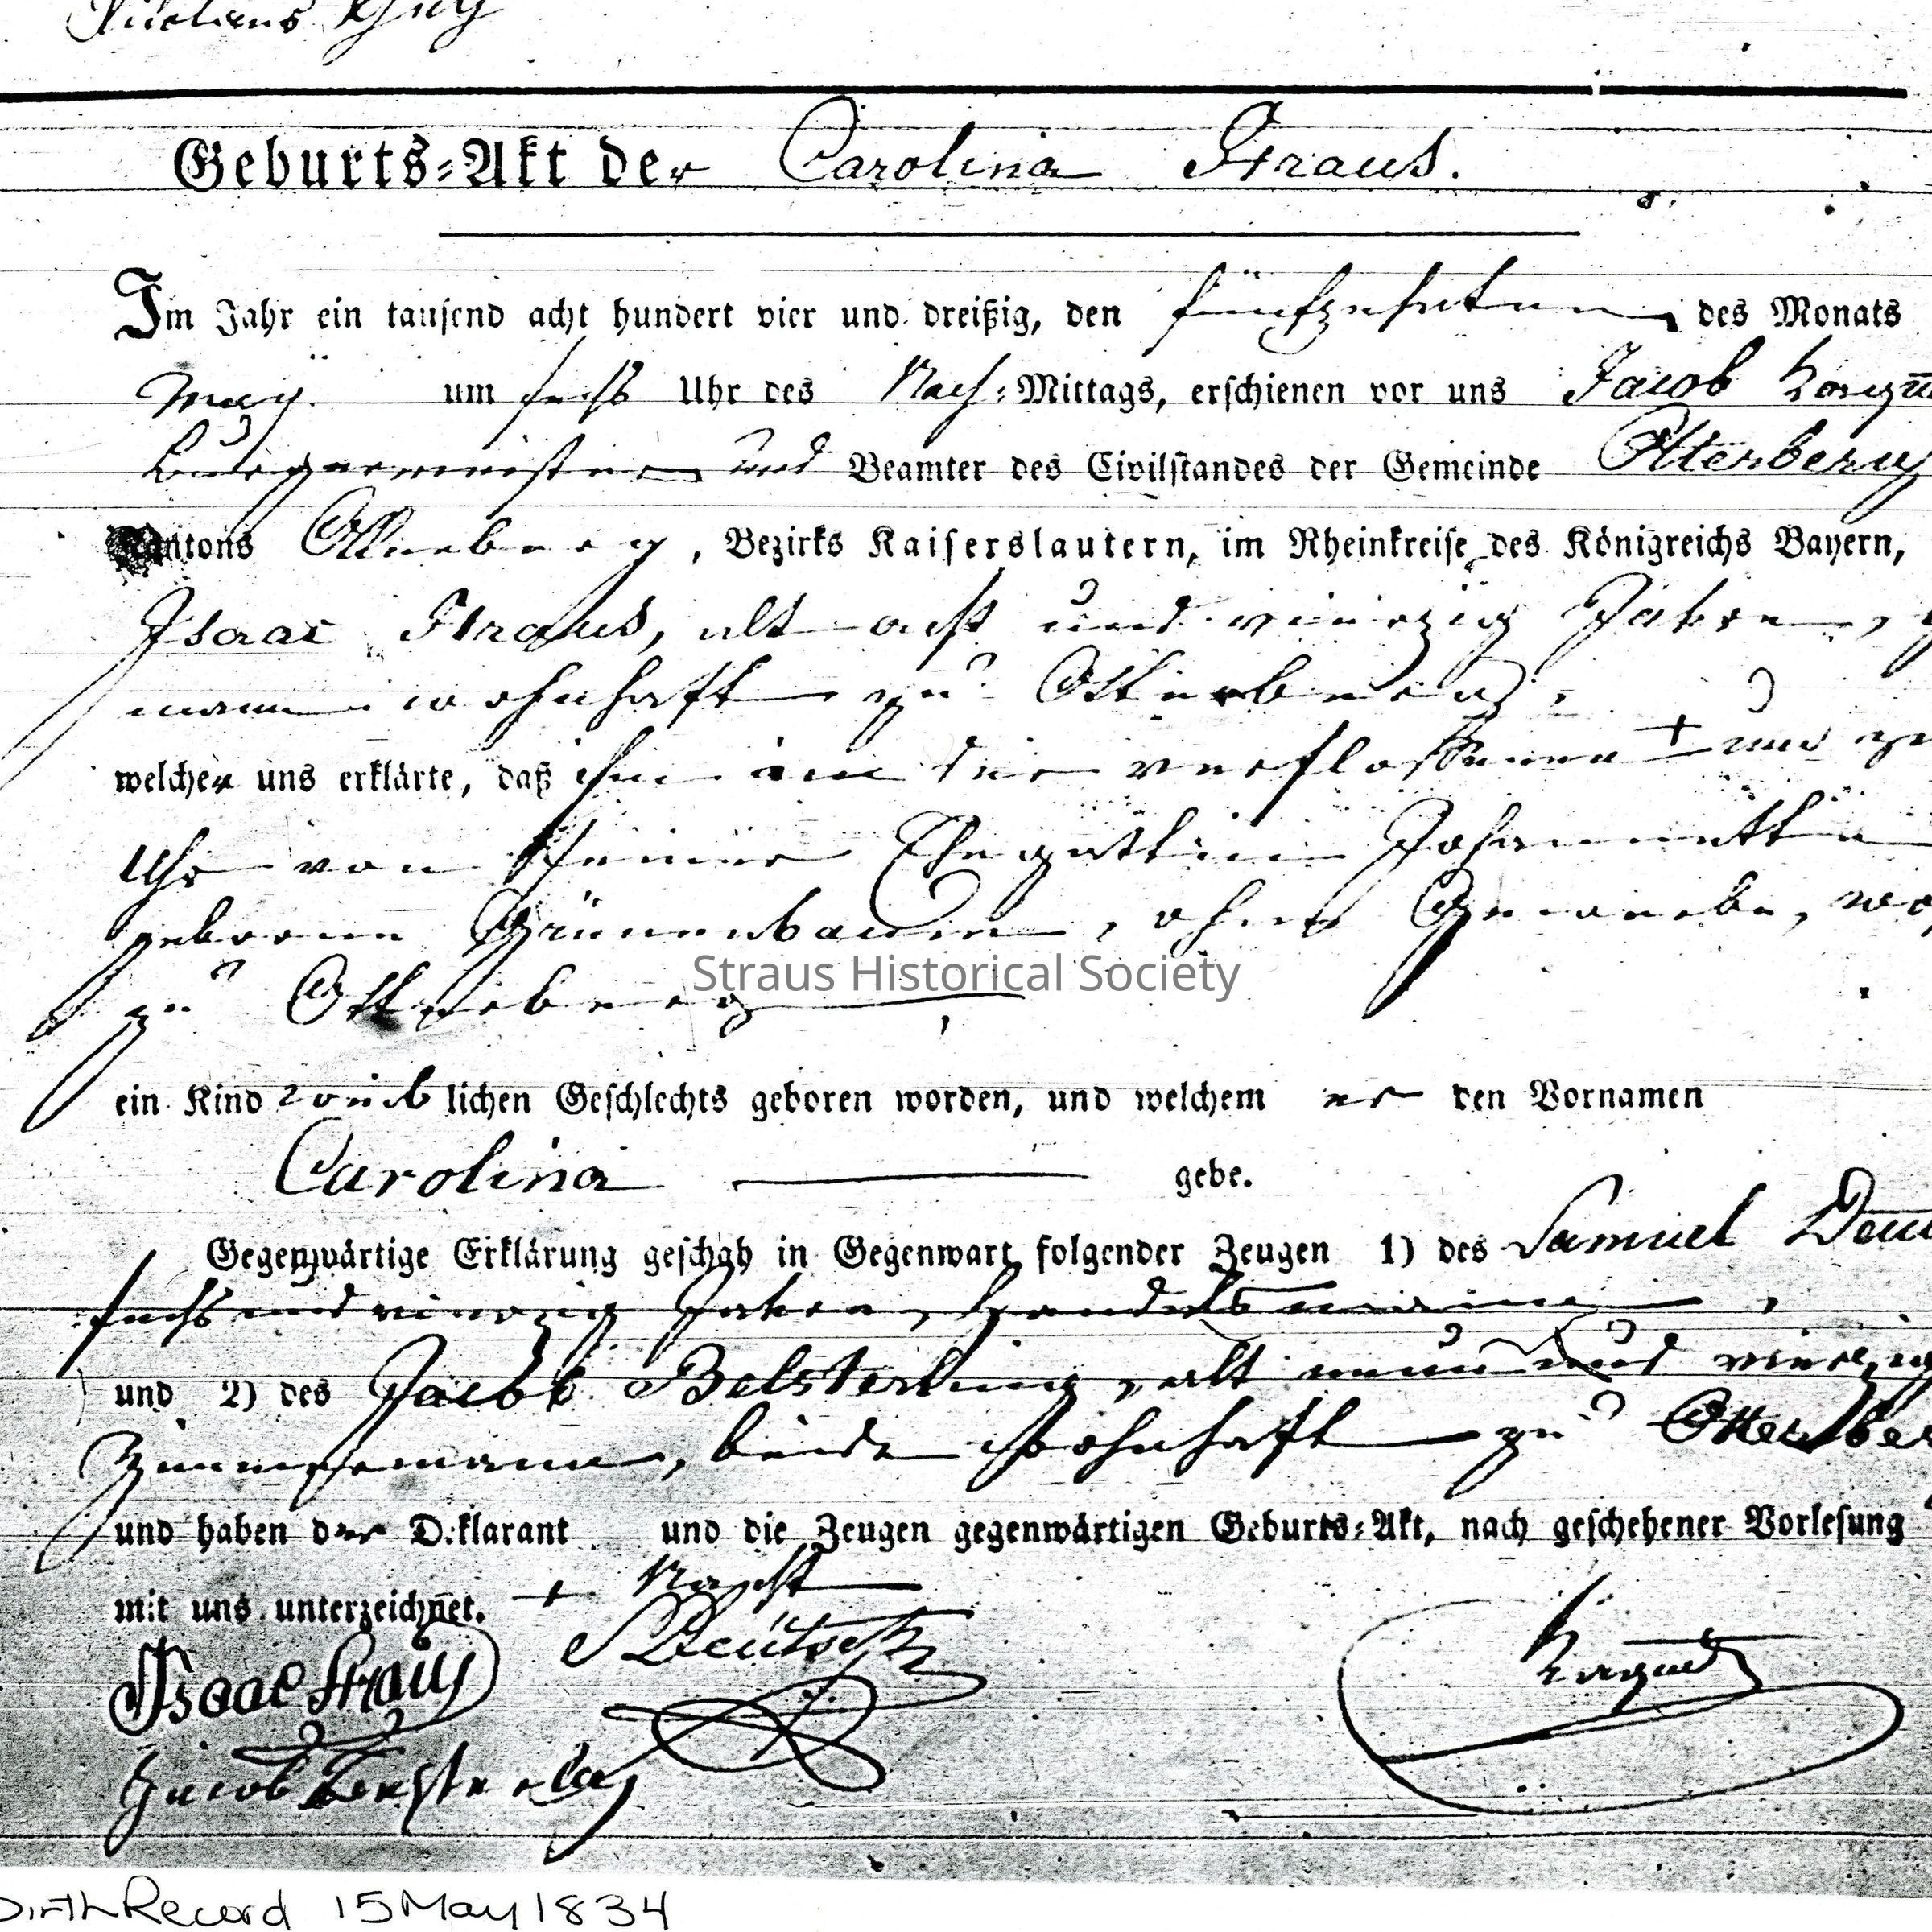 Geburts-Akt der Carolina Straus.
Im Jahr ein tausend acht hundert vier und dreißig, den fünfzehnten des Monats
May um sechs Uhr des Nach-Mittags, erschienen vor uns Jacob
Bürgermeister und Beamter des Civilstandes der Gemeinde Otterberg
Kantons Otterberg, Bezirks Kaiserslautern, im Rheinkreise des Königreichs Bayern,
Isaac Straus, alt acht und vierzig Jahren,
mann wohnhaft zu Otterberg,
welcher uns erklärte, daß ihm in der verflossenen + um
Uhr von seiner Ehegattin Johannetta
geborne Grünenbaum, ohne Gewerbe,
zu Otterberg
Straus Historical Society
ein Kind weiblichen Geschlechts geboren worden, und welchem er den Vornamen
Carolina gebe.
Gegenwärtige Erklärung geschah in Gegenwart folgender Zeugen 1) des Samuel
sechs und vierzig Jahren, Handelsmann,
und 2) des Jacob Belsterling, alt neun und vierzig
Zimmermann, beide wohnhaft zu Otterber
und haben der Deklarant und die Zeugen gegenwärtigen Geburts-Akt, nach geschehener Vorlesung
mit uns unterzeichnet. + Nacht
Isaac Straus S Deutsch
Jacob
Birth Record 15 May 1834